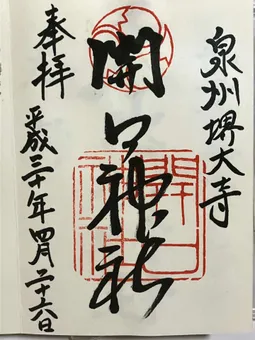 泉州堺大寺
開口神社
奉拝
平成三十年四月二十六日
開口神社